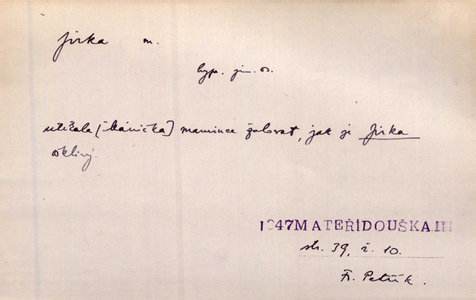 Jirka m.
hyp. jm. os.
utíkala [Kánička] mamince žalovat, jak je Jirka
ošklivý.
1947 MATEŘÍDOUŠKA III
str. 39, č. 10.
Fr. Petrík.